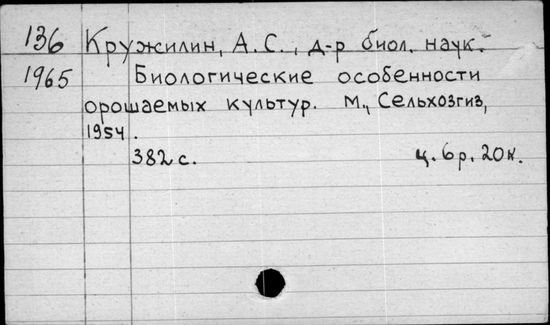 136 Кружилин, А.С., д-р биол. наук.
1965 Биологические особенности
орошаемых культур. М., Сельхозгиз,
1954.
382 с. ц. 6р. 20к.